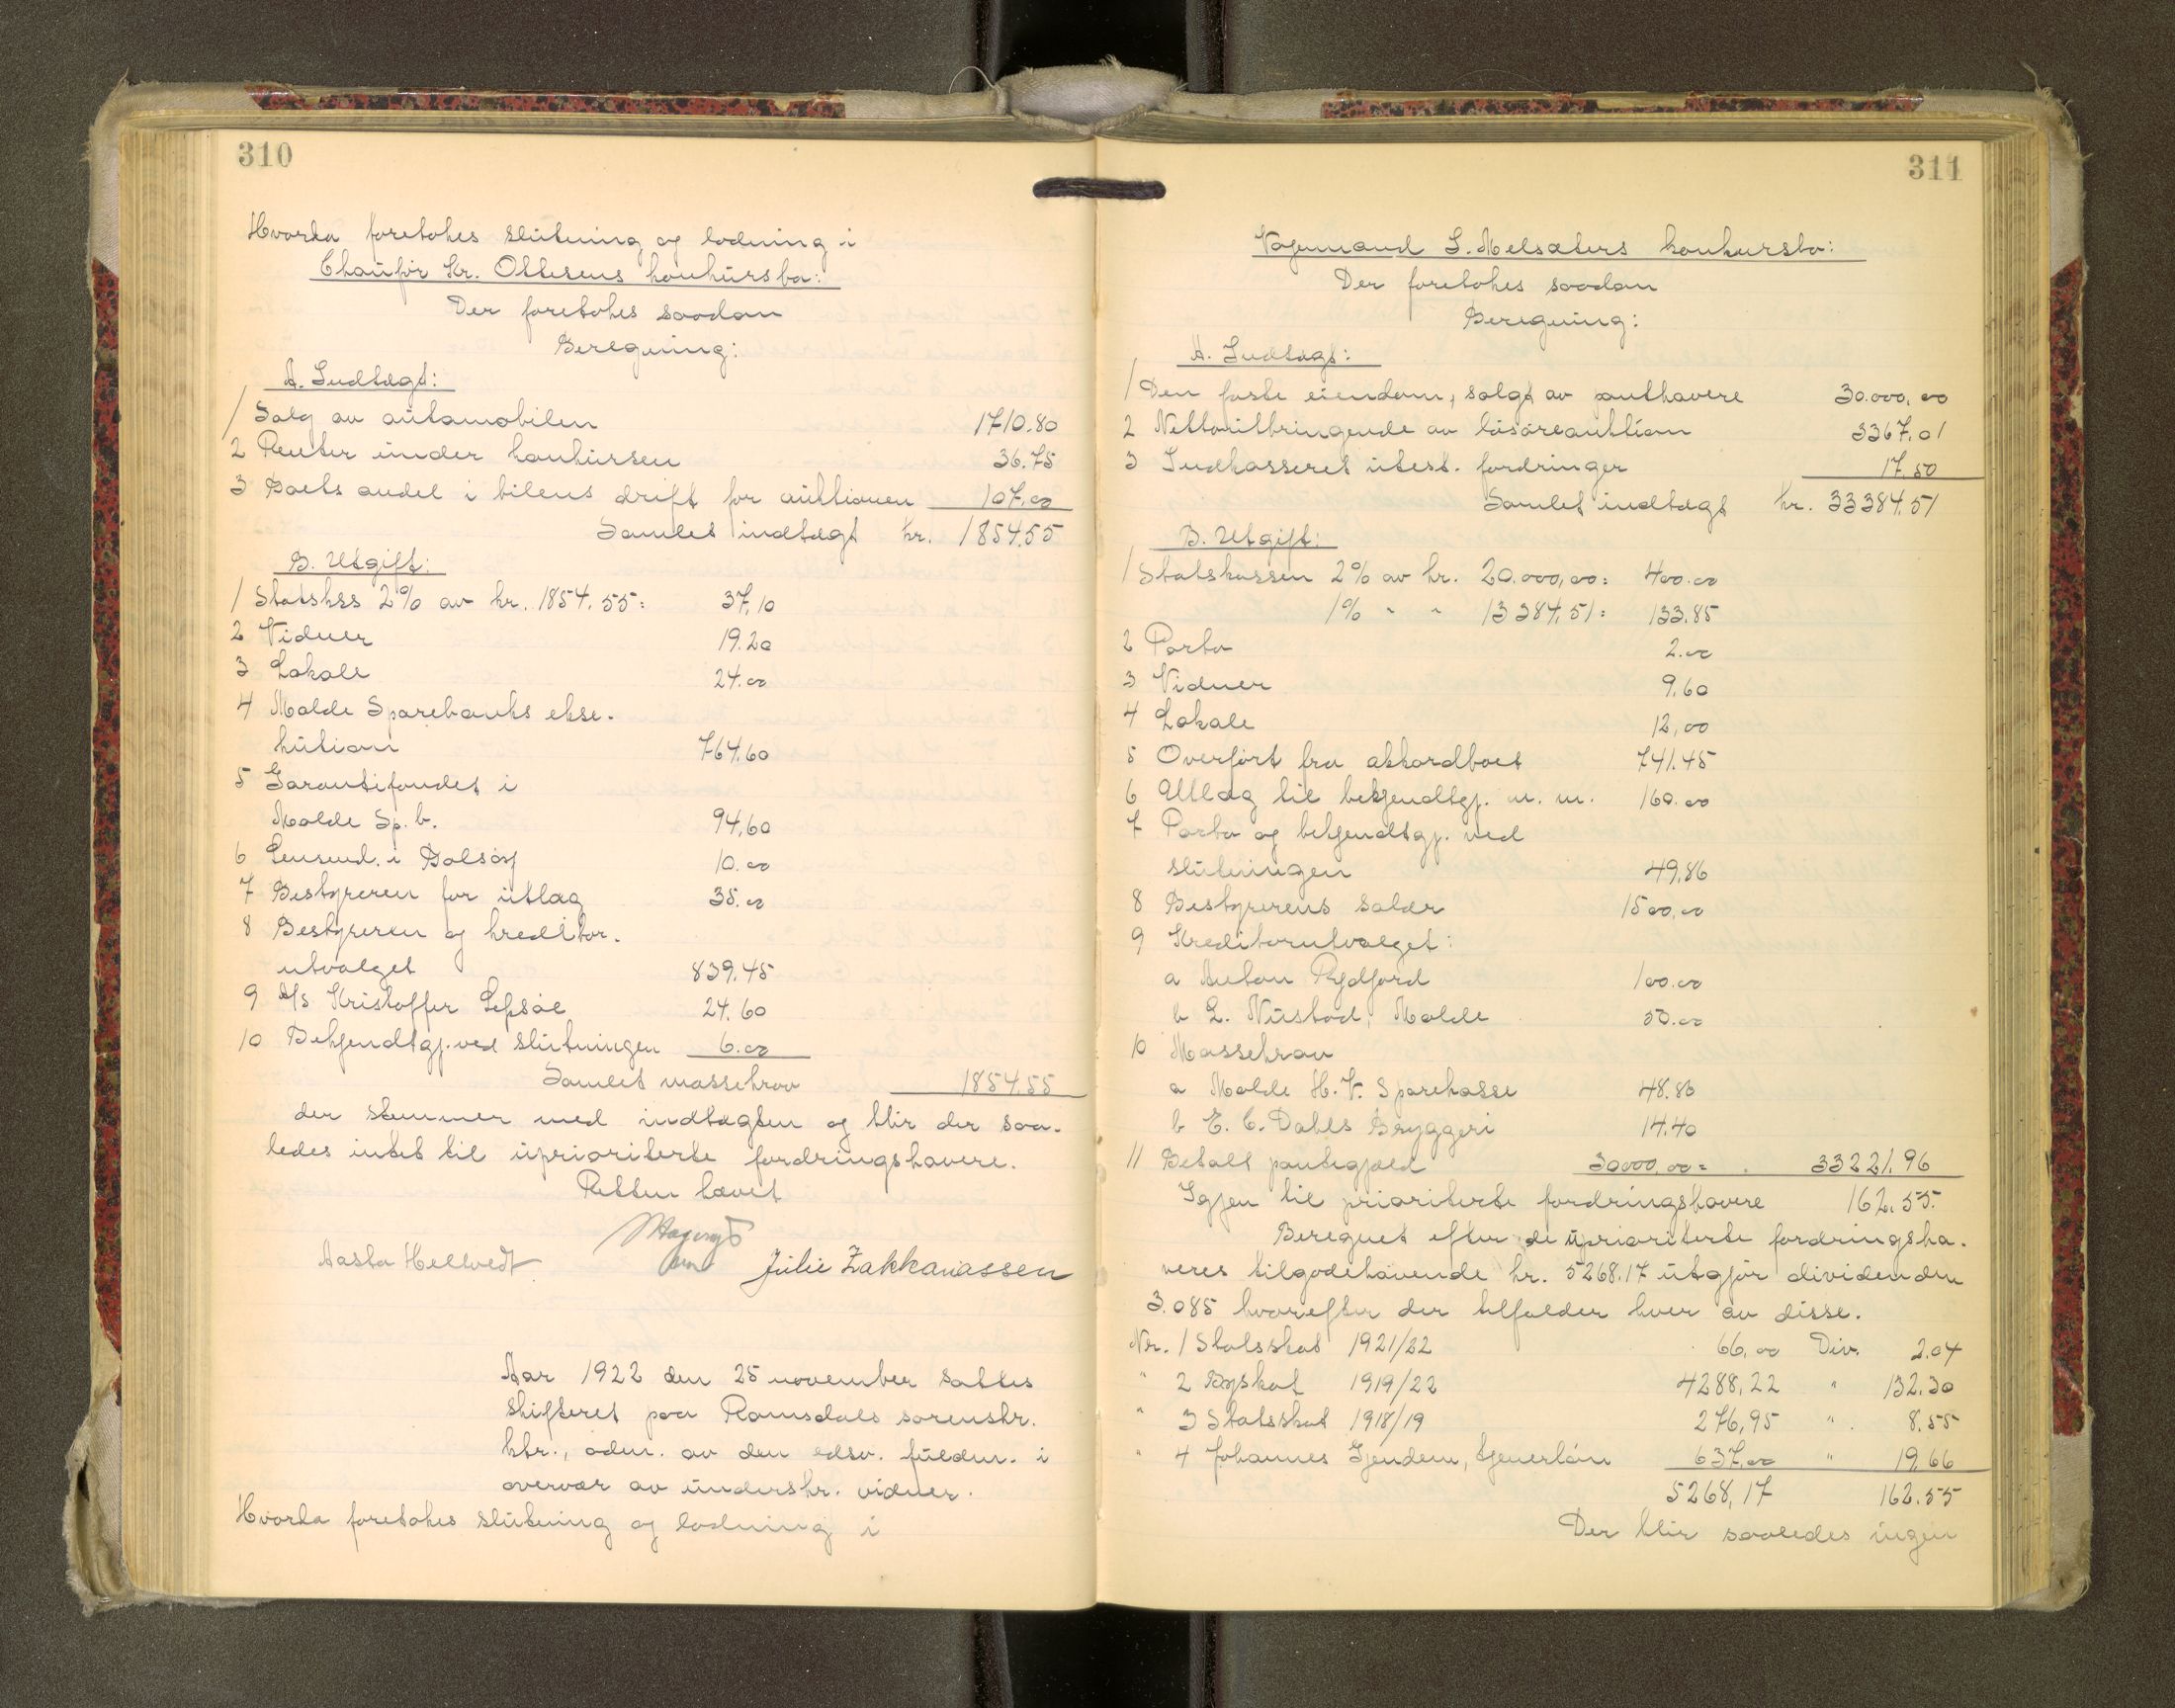 310
Hvorda foretokes slutning og lodning i
Chaufør Kr. Ottesens konkursbo:
Der foretokes saadan
Beregning:
A. Indtægt:
1 Salg av automobilen 1710.80
2 Renter under konkursen 36.75
3 Boets andel i bilens drift før auktionen 107,00
Samlet indtægt kr. 1854.55
B. Utgift:
1 Statskss 2% av kr. 1854.55: 37,10
2 Vidner 19.20
3 Lokale 24.00
4 Molde Sparebanks ekse-
kution 764.60
5 Garantifondet i
Molde Sp. b. 94,60
6 Lensmd. i Bolsøy 10.00
7 Bestyreren for utlæg 35.00
8 Bestyreren og kreditor-
utvalget 839.45
9 A/s Kristoffer Lepsøe 24.60
10 Bekjendtgj. ved slutningen 6.00
Samlet massekrav 1854.55
der stemmer med indtægten og blir der saa-
ledes intet til upriorterte fordringshavere.
Retten hævet
Aasta Hellvedt Julie Zakkariassen
Aar 1922 den 25 november sattes
skifteret paa Romsdals sorenskr.
ktr., adm. av den edsv. fuldm. i
overvær av underskr. vidner.
Hvorda foretokes slutning og lodning i
311
Vognmand S. Melsæters konkursbo:
Der foretokes saadan
Beregning:
A. Indtægt:
1 Den faste eiendom, solgt av panthavere 30.000,00
2 Nettoutbringende av løsøreauktion 3367.01
3 Indkasseret utest. fordringer 17.50
Samlet indtægt kr. 33384.51
B. Utgift:
1 Statskassen 2% av kr. 20.000,00: 400.00
1% " " 13384,51: 133.85
2 Porto 2.00
3 Vidner 9.60
4 Lokale 12,00
5 Overført fra akkordboet 741.45
6 Utlæg til bekjendtgj. m. m. 160.00
7 Porto og bekjendtgj. ved
slutningen 49.86
8 Bestyrerens salær 1500,00
9 Kreditorutvalget:
a Anton Rydjord 100.00
b L. Nustad, Molde 50.00
10 Massekrav
a Molde H. V. Sparekasse 48.80
b E. C. Dahls Bryggeri 14.40
11 Betalt pantegjæld 30000,00= 33221.96
Igjen til prioriterte fordringshavere 162.55.
Beregnet efter de uprioriterte fordringsha-
veres tilgodehavende kr. 5268.17 utgjør dividenden
3.085 hvorefter der tilfalder hver av disse.
Nr. 1 Statsskat 1921/22 66,00 Div. 2.04
" 2 Byskat 1919/22 4288,22 " 132.30
" 3 Statsskat 1918/19 276,95 " 8.55
" 4 Johannes Gjendem, tjenerløn 637,00 " 19.66
5268,17 162.55
Der blir saaledes ingen